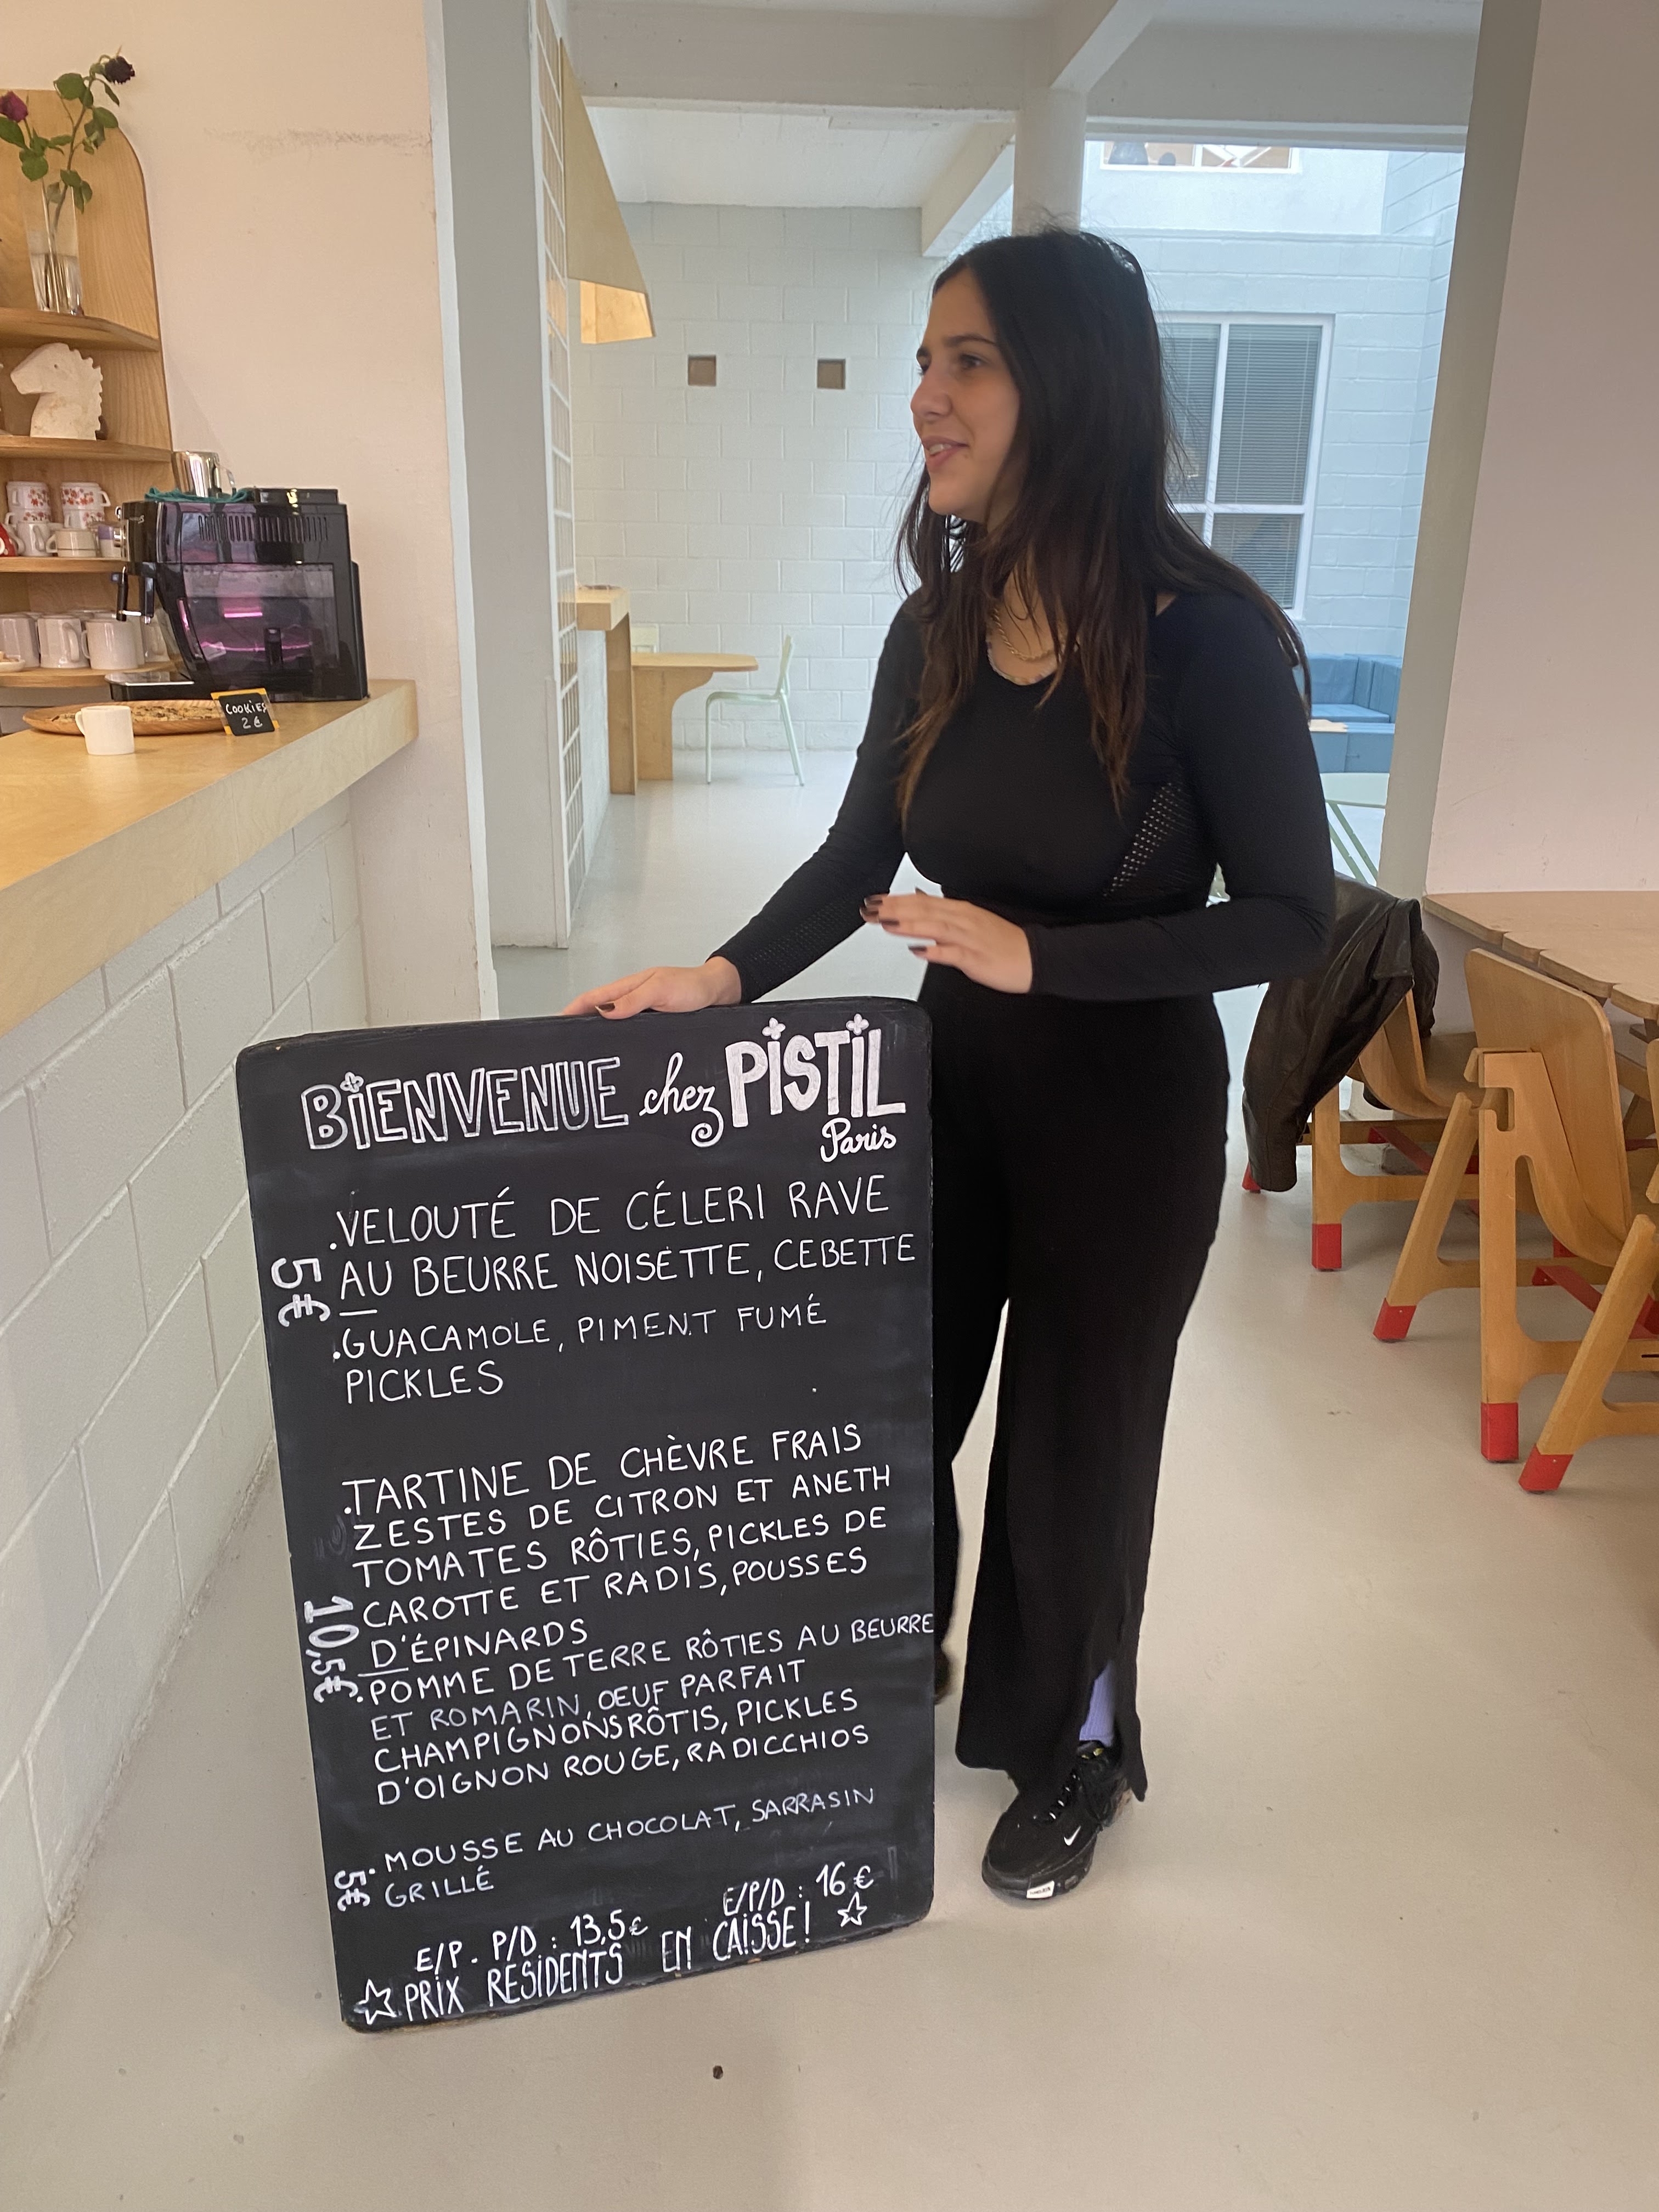 COOKIES
2€
BiENVENUE chez PiSTiL
Paris
.VELOUTÉ DE CÉLERI RAVE
AU BEURRE NOISETTE, CEBETTE
5€
.GUACAMOLE, PIMENT FUMÉ
PICKLES
.TARTINE DE CHÈVRE FRAIS
ZESTES DE CITRON ET ANETH
TOMATES RÔTIES, PICKLES DE
CAROTTE ET RADIS, POUSSES
D'ÉPINARDS
10,5€
.POMME DE TERRE RÔTIES AU BEURRE
ET ROMARIN, OEUF PARFAIT
CHAMPIGNONS RÔTIS, PICKLES
D'OIGNON ROUGE, RADICCHIOS
.MOUSSE AU CHOCOLAT, SARRASIN
GRILLÉ
5€
E/P - P/D : 13,5€ E/P/D : 16€
☆ PRiX RESiDENTS EN CAiSSE! ☆